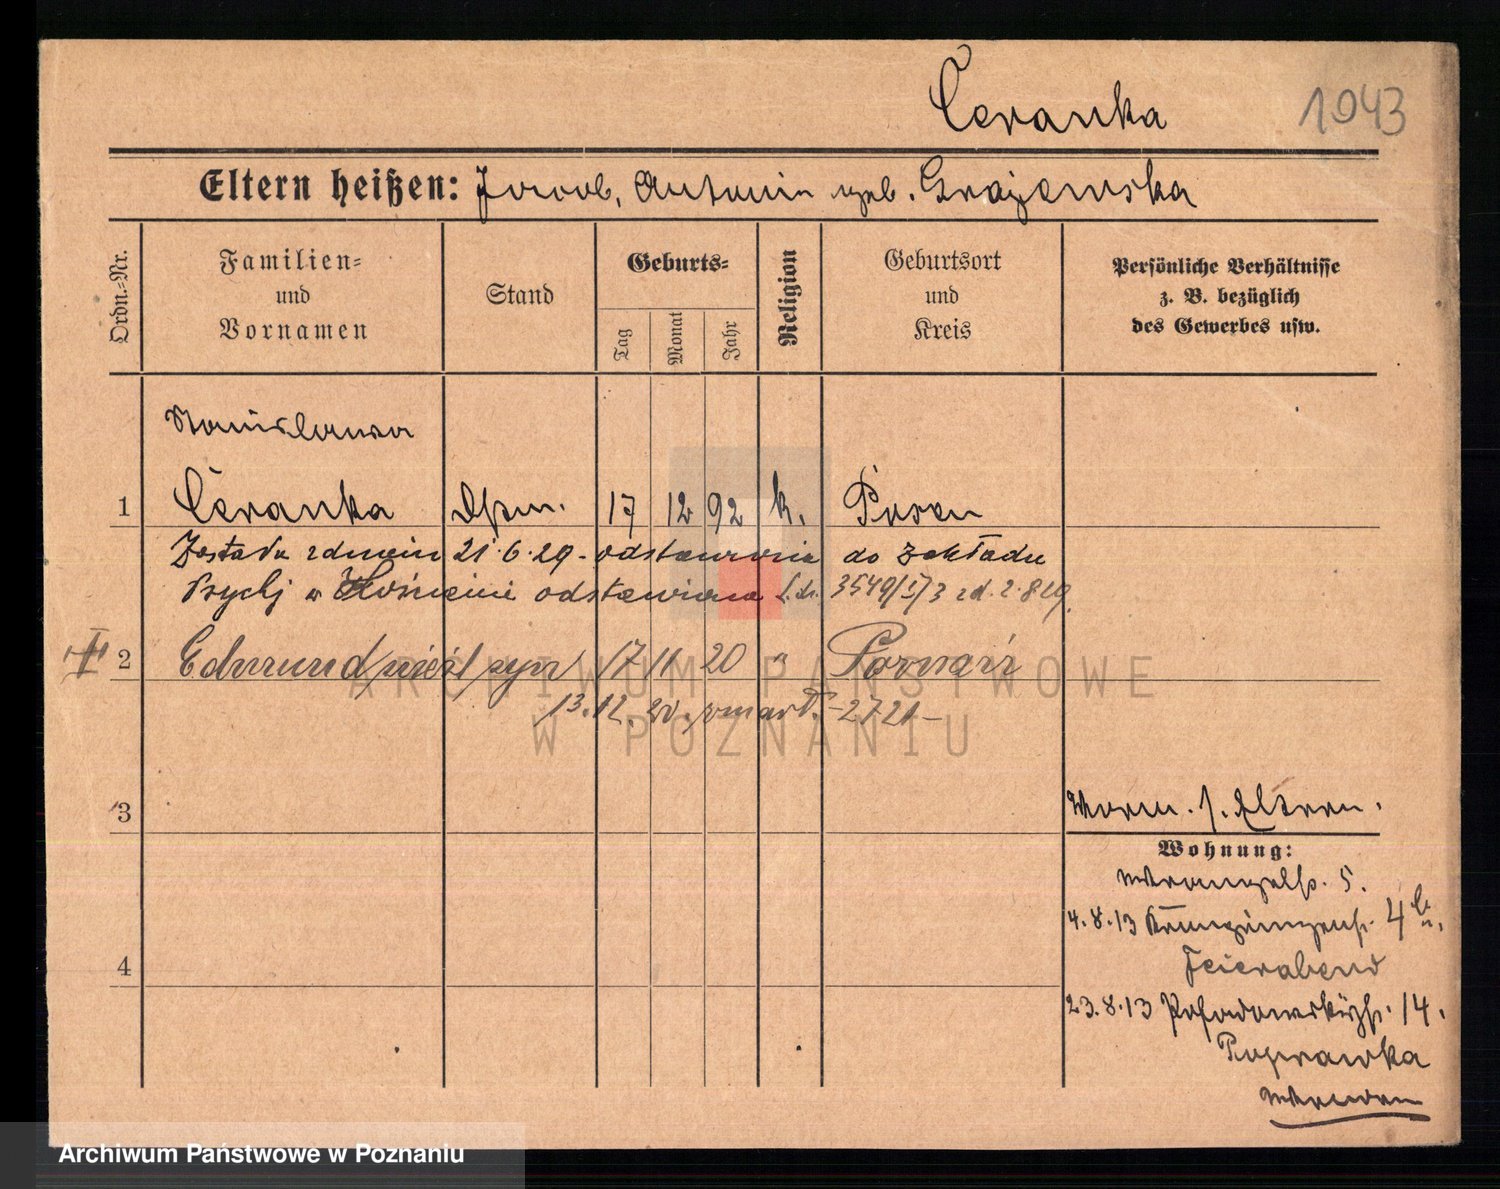 Ceranka 1943
Eltern heißen: Jacob, Antonie geb. Grajewska
Ordn.-Nr.
Familien- und Vornamen
Stand
Geburts-
Tag
Monat
Jahr
Religion
Geburtsort und Kreis
Persönliche Verhältnisse z. B. bezüglich des Gewerbes usw.
Stanislawa
1 Ceranka 17 12 92 k. Posen
21.6.29 - odstawiona do Zakładu
Psych w Kościanie odstawiona 3549/I/3 2.8.29.
2 Edmund nieśl syn 17 11 20 " Poznań
13.12.20. zmarł. -2721-
3
Eltern.
Wohnung:
5.
4
4.8.13
Feierabend
23.8.13 14.
Poprawka
ARCHIWUM PAŃSTWOWE
W POZNANIU
Archiwum Państwowe w Poznaniu